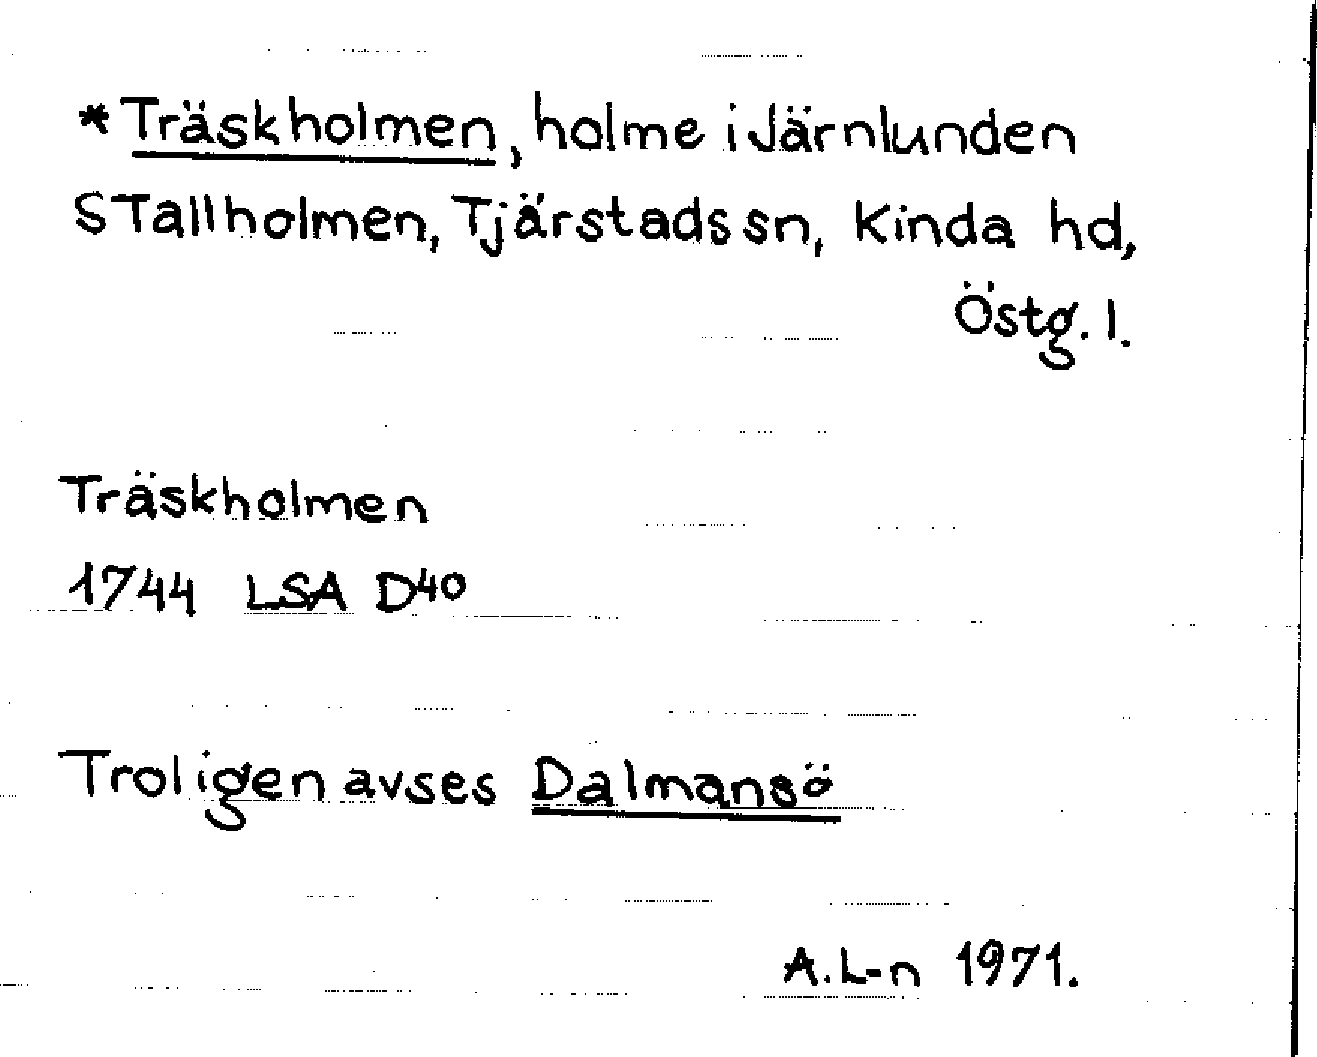 *Träskholmen, holme i Järnlunden
S Tallholmen, Tjärstads sn, Kinda hd,
Östg. l.
Träskholmen
1744 LSA D40
Troligen avses Dalmansö
A. L-n 1971.